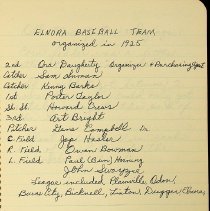 ELNORA BASEBALL TEAM
organized in 1925
2nd Ora Daugherty Organizer & Purchasing Agt
Catcher Sam Inman
Catcher Kenny Barks
1st Porter Taylor
St. St. Howard Crews
3rd Art Bright
Pitcher Gans Campbell
C Field Jap
R. Field Owen Bowman
L. Field Paul (Bam) Horning
John Swayze
League included Plainville, Odon,
Burns City, Bicknell, Linton, Dugger, Elnora,